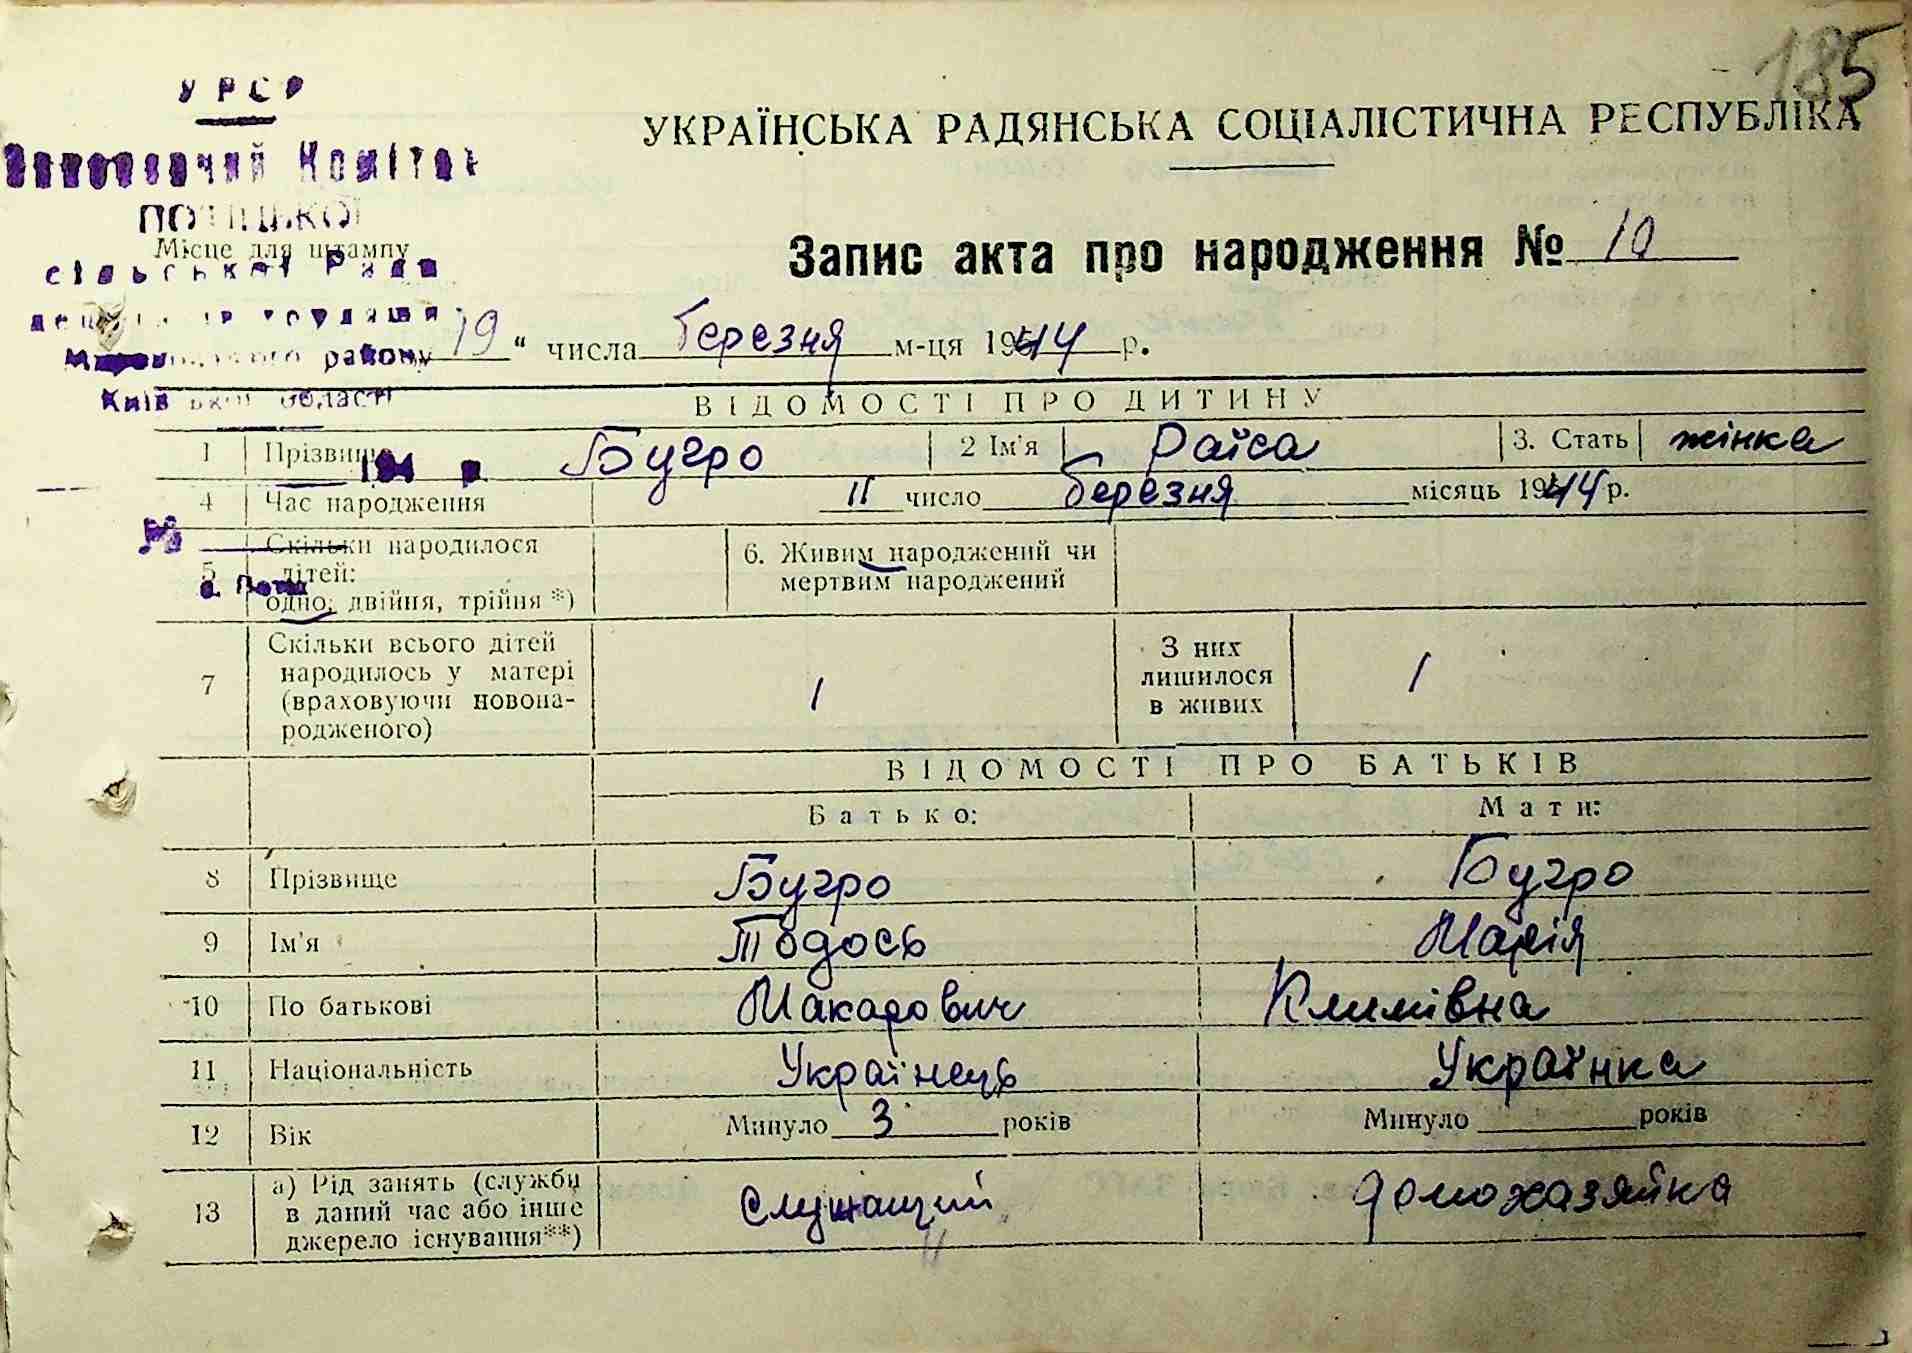 185
УРСР
Виконавчий Комітет
ПОТІЦЬКОЇ
Місце для штампу
сільської Ради
депутатів трудящих
району
Київської області
194 р.
№
с. Поти
УКРАЇНСЬКА РАДЯНСЬКА СОЦІАЛІСТИЧНА РЕСПУБЛІКА
Запис акта про народження № 10
19 " числа березня м-ця 1944 р.
ВІДОМОСТІ ПРО ДИТИНУ
1 Прізвище Бугро 2 Ім'я Раїса 3. Стать жінка
4 Час народження 11 число березня місяць 1944 р.
5 Скільки народилося дітей: одно, двійня, трійня *) 6. Живим народжений чи мертвим народжений
7 Скільки всього дітей народилось у матері (враховуючи новона-родженого) 1 З них лишилося в живих 1
ВІДОМОСТІ ПРО БАТЬКІВ
Батько: Мати:
8 Прізвище Бугро Бугро
9 Ім'я Тодось Марія
10 По батькові Макарович Климівна
11 Національність Українець Українка
12 Вік Минуло 3 років Минуло років
13 а) Рід занять (служби в даний час або інше джерело існування**) служащий домохазяйка